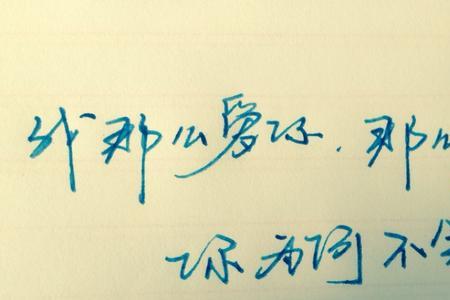 我那么爱你.那么
你为何不